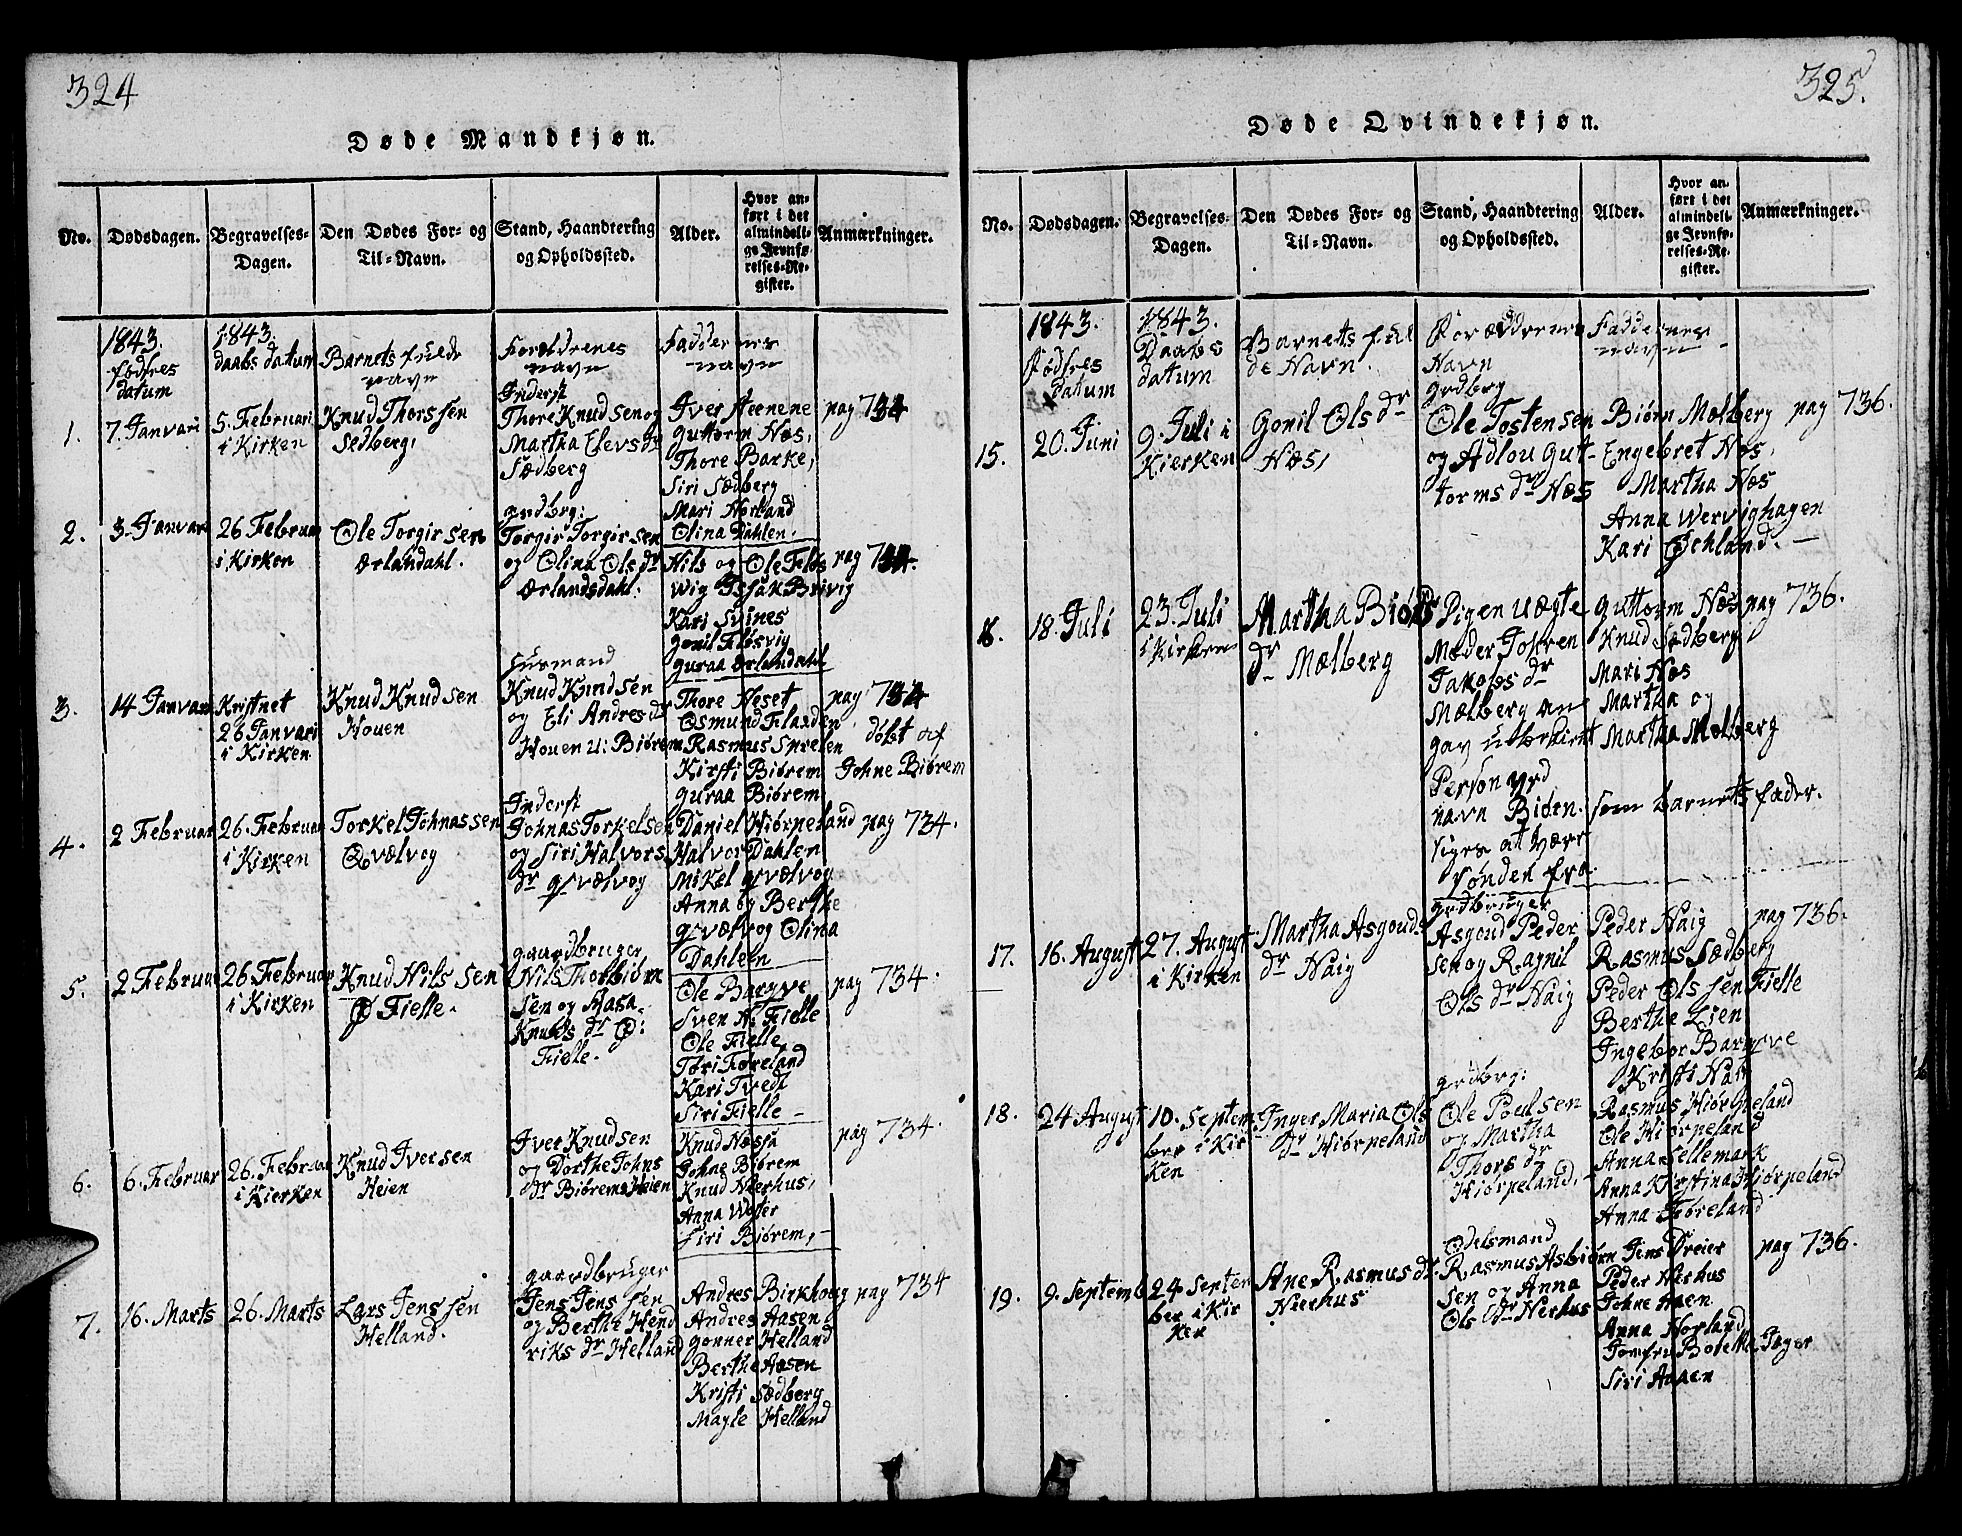 324
Døde Mandkjøn.
No.
Dødsdagen.
Begravelses-
Dagen.
Den Dødes For- og
Til-Navn.
Stand, Haandtering
og Opholdssted.
Alder.
Hvor an-
ført i det
almindeli-
ge Jevnfø-
relses-Re-
gister.
Anmærkninger.
1843.
fødsres
datum
1843.
daabs datum
Barnets fulde
navn
Foreldrenes
navn
Faddernes
navn
1.
7. Janvari
5. Februari
i Kirken
Knud Thorssen
Sedberg,
Inderst
Thore Knudsen og
Martha Elevs dr
Sædberg
Iver Steenene
Guttorm Næs,
Thore Barke,
Siri Sædberg
Mari Norland
Olina Dahlen,
pag 734
2.
3. Janvar
26 Februar
i Kirken
Ole Torgirsen
Ørlandahl.
gardbrg:
Torgir Torgirsen
og Olina Ols dr
Ørlandsdahl.
Nils og Ole Fløs
wig Issak Brivig
Kari Svines
Gonil Fløsvig
Guraa Ørlandahl
pag 734.
3.
14 Janvar
Kristnet
26 Janvari
i Kirken
Knud Knudsen
Houen
Husmand
Knud Knudsen
og Eli Andres dr
Houen u: Biørem
Thore Heset
Osmund Flanden
Rasmus Sprelen
Kirsti Biørem
Guraa Biørem
pag 734
døbt af
Johne Biørem
4.
2 Februar
26. Februar
i Kirken
Torkel Johnassen
Qvælvog
Inderst
Johnas Torkelsen
og Siri Halvors
dr Qvælvog
Daniel Hiørpeland
Halvor Dahlen
Mikel Qvælvog
Anna og Berthe
Qvælvog Olina
Dahlen
pag 734.
5.
2 Februar
26 Februar
i Kirken
Knud Nilssen
Ø Fielle.
gaardbruger
Nils Thorbiørn
sen og Masa
Knuds dr Ø:
Fielle.
Ole Bargve
Sven N. Fielle
Ole Fielle
Tøri Føreland
Kari Tvedt
Siri Fielle
pag 734.
6.
6. Februar
26. Februar
i Kierken
Knud Iversen
Heien
Iver Knudsen
og Dorthe Johns
dr Biørem Heien
Knud Næssa
Johne Biørem
Knud Nierhus,
Anna Weter
Siri Biørem,
pag 734.
7.
16. Marts
26. Marts
Lars Jenssen
Helland.
gaardbruger
Jens Jenssen
og Berthe Hend
riks dr Helland
Andres Birkhoug
Andres Aasen
Gonner Helland
Berthe Aasen
Kristi Sædberg
Magle Helland
pag 734
325.
Døde Qvindekjøn.
No.
Dødsdagen.
Begravelses-
Dagen.
Den Dødes For- og
Til-Navn.
Stand, Haandtering
og Opholdssted.
Alder.
Hvor an-
ført i det
almindeli-
ge Jevnfø-
relses-Re-
gister.
Anmærkninger.
1843.
fødsres
datum
1843.
Daabs
datum
Barnets ful
de Navn.
Forældrenes
Navn
Faddernes
navn
15.
20. Juni
9. Juli i
Kierken
Gonil Ols dr
Næs,
grdberg
Ole Tostensen
og Adlou Gut-
torms dr Næs
Biørn Mælberg
Engebret Næs,
Martha Næs
Anna Wervighagen
Kari Øchland.
pag 736.
16.
18. Juli
23. Juli
i Kirken
Martha Biørs
dr Mælberg
Pigen uægte
Moder Jokren
Jakobs dr
Mælberg an
gav ubekient
Person ved
navn Biørn. som barnets fader.
siges at være
sønden fra.
Guttorm Næs
Knud Sædberg
Mari Næs
Martha og
Martha Mælberg
pag 736.
17.
16. August
27. August
i Kirken
Martha Asgouds
dr Naig
grdbruger
Asgoud Peder
sen og Ragnil
Ols dr Naig
Peder Naig
Rasmus Sædberg
Peder Olssen Fielle
Berthe Lien
Ingebor Bargve
Kristi Naig
pag 736.
18.
24 August
10. Septem
ber i Kir
ken
Inger Maria Ols
dr Hiørpeland
grdbrg:
Ole Poulsen
og Martha
Thors dr
Hiørpeland.
Rasmus Hiørpeland
Ole Hiørpeland
Anna Sellemark
Anna Kristina Hiørpeland
Anna Føreland
19.
9. Septemb
24 Septem
ber i Kir
ken
Ane Rasmus dr
Nierhus
Odelsmand
Rasmus Asbiørn
sen og Anna
Ols dr Nerhus
Jens Dreier
Peder Nerhus
Johne Aaen
Anna Norland
Jomfru Botelle Jager
Siri Aaen
pag 736.